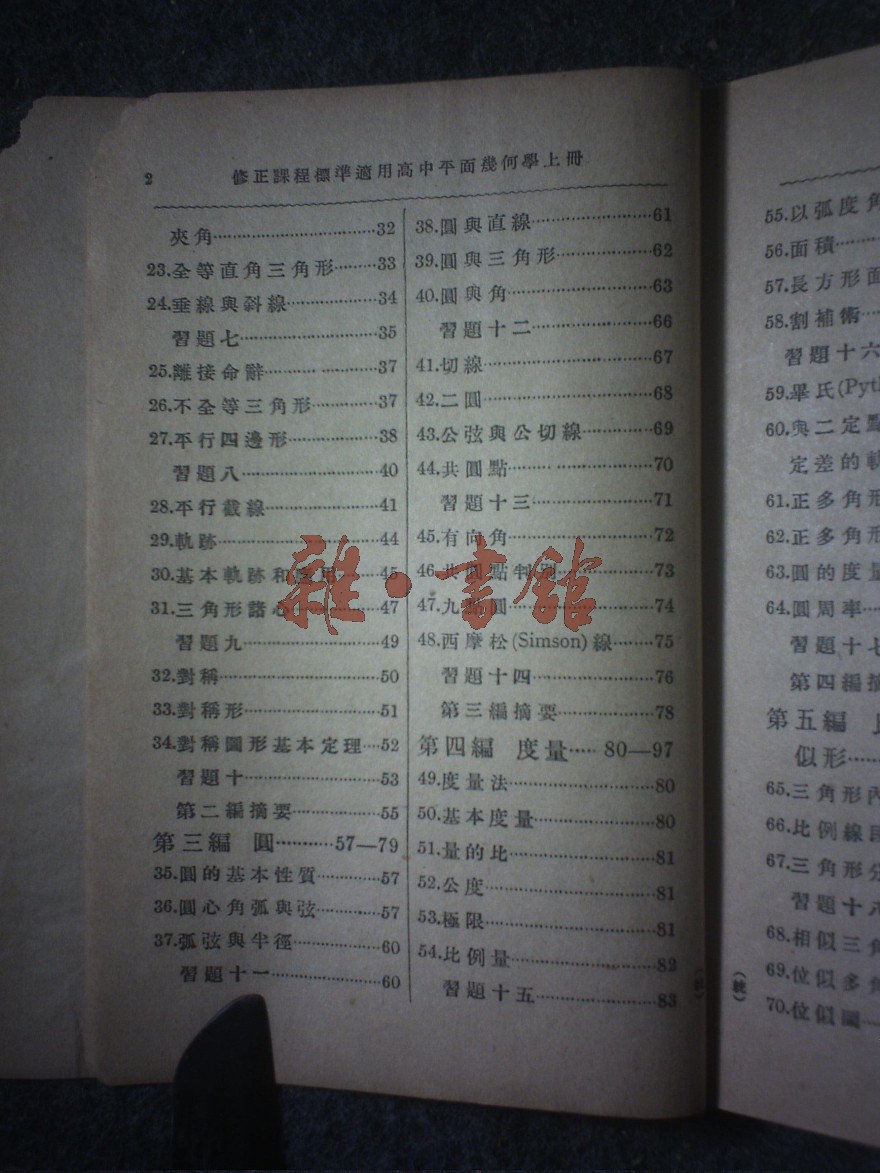 2
修正課程標準適用高中平面幾何學上冊
夾角……………32
23.全等直角三角形………33
24.垂線與斜線……………34
習題七……………35
25.離接命辭……………37
26.不全等三角形…………37
27.平行四邊形……………38
習題八……………40
28.平行截線……………41
29.軌跡……………44
30.基本軌跡和應用……45
31.三角形諸心……………47
習題九……………49
32.對稱……………50
33.對稱形……………51
34.對稱圖形基本定理…52
習題十……………53
第二編摘要……………55
第三編 圓………57—79
35.圓的基本性質…………57
36.圓心角弧與弦…………57
37.弧弦與半徑……………60
習題十一……………60
38.圓與直線……………61
39.圓與三角形……………62
40.圓與角……………63
習題十二……………66
41.切線……………67
42.二圓……………68
43.公弦與公切線…………69
44.共圓點……………70
習題十三……………71
45.有向角……………72
46.共圓點判別……………73
47.九點圓……………74
48.西摩松(Simson)線……75
習題十四……………76
第三編摘要……………78
第四編 度量…… 80—97
49.度量法……………80
50.基本度量……………80
51.量的比……………81
52.公度……………81
53.極限……………81
54.比例量……………82
習題十五……………83
55.以弧度角
56.面積……
57.長方形面
58.割補術…
習題十六
59.畢氏(Pyth
60.與二定點
定差的軌
61.正多角形
62.正多角形
63.圓的度量
64.圓周率…
習題十七
第四編摘
第五編
似形……
65.三角形內
66.比例線段
67.三角形分
習題十八
68.相似三角
69.位似多角
70.位似圖…
雜·書館